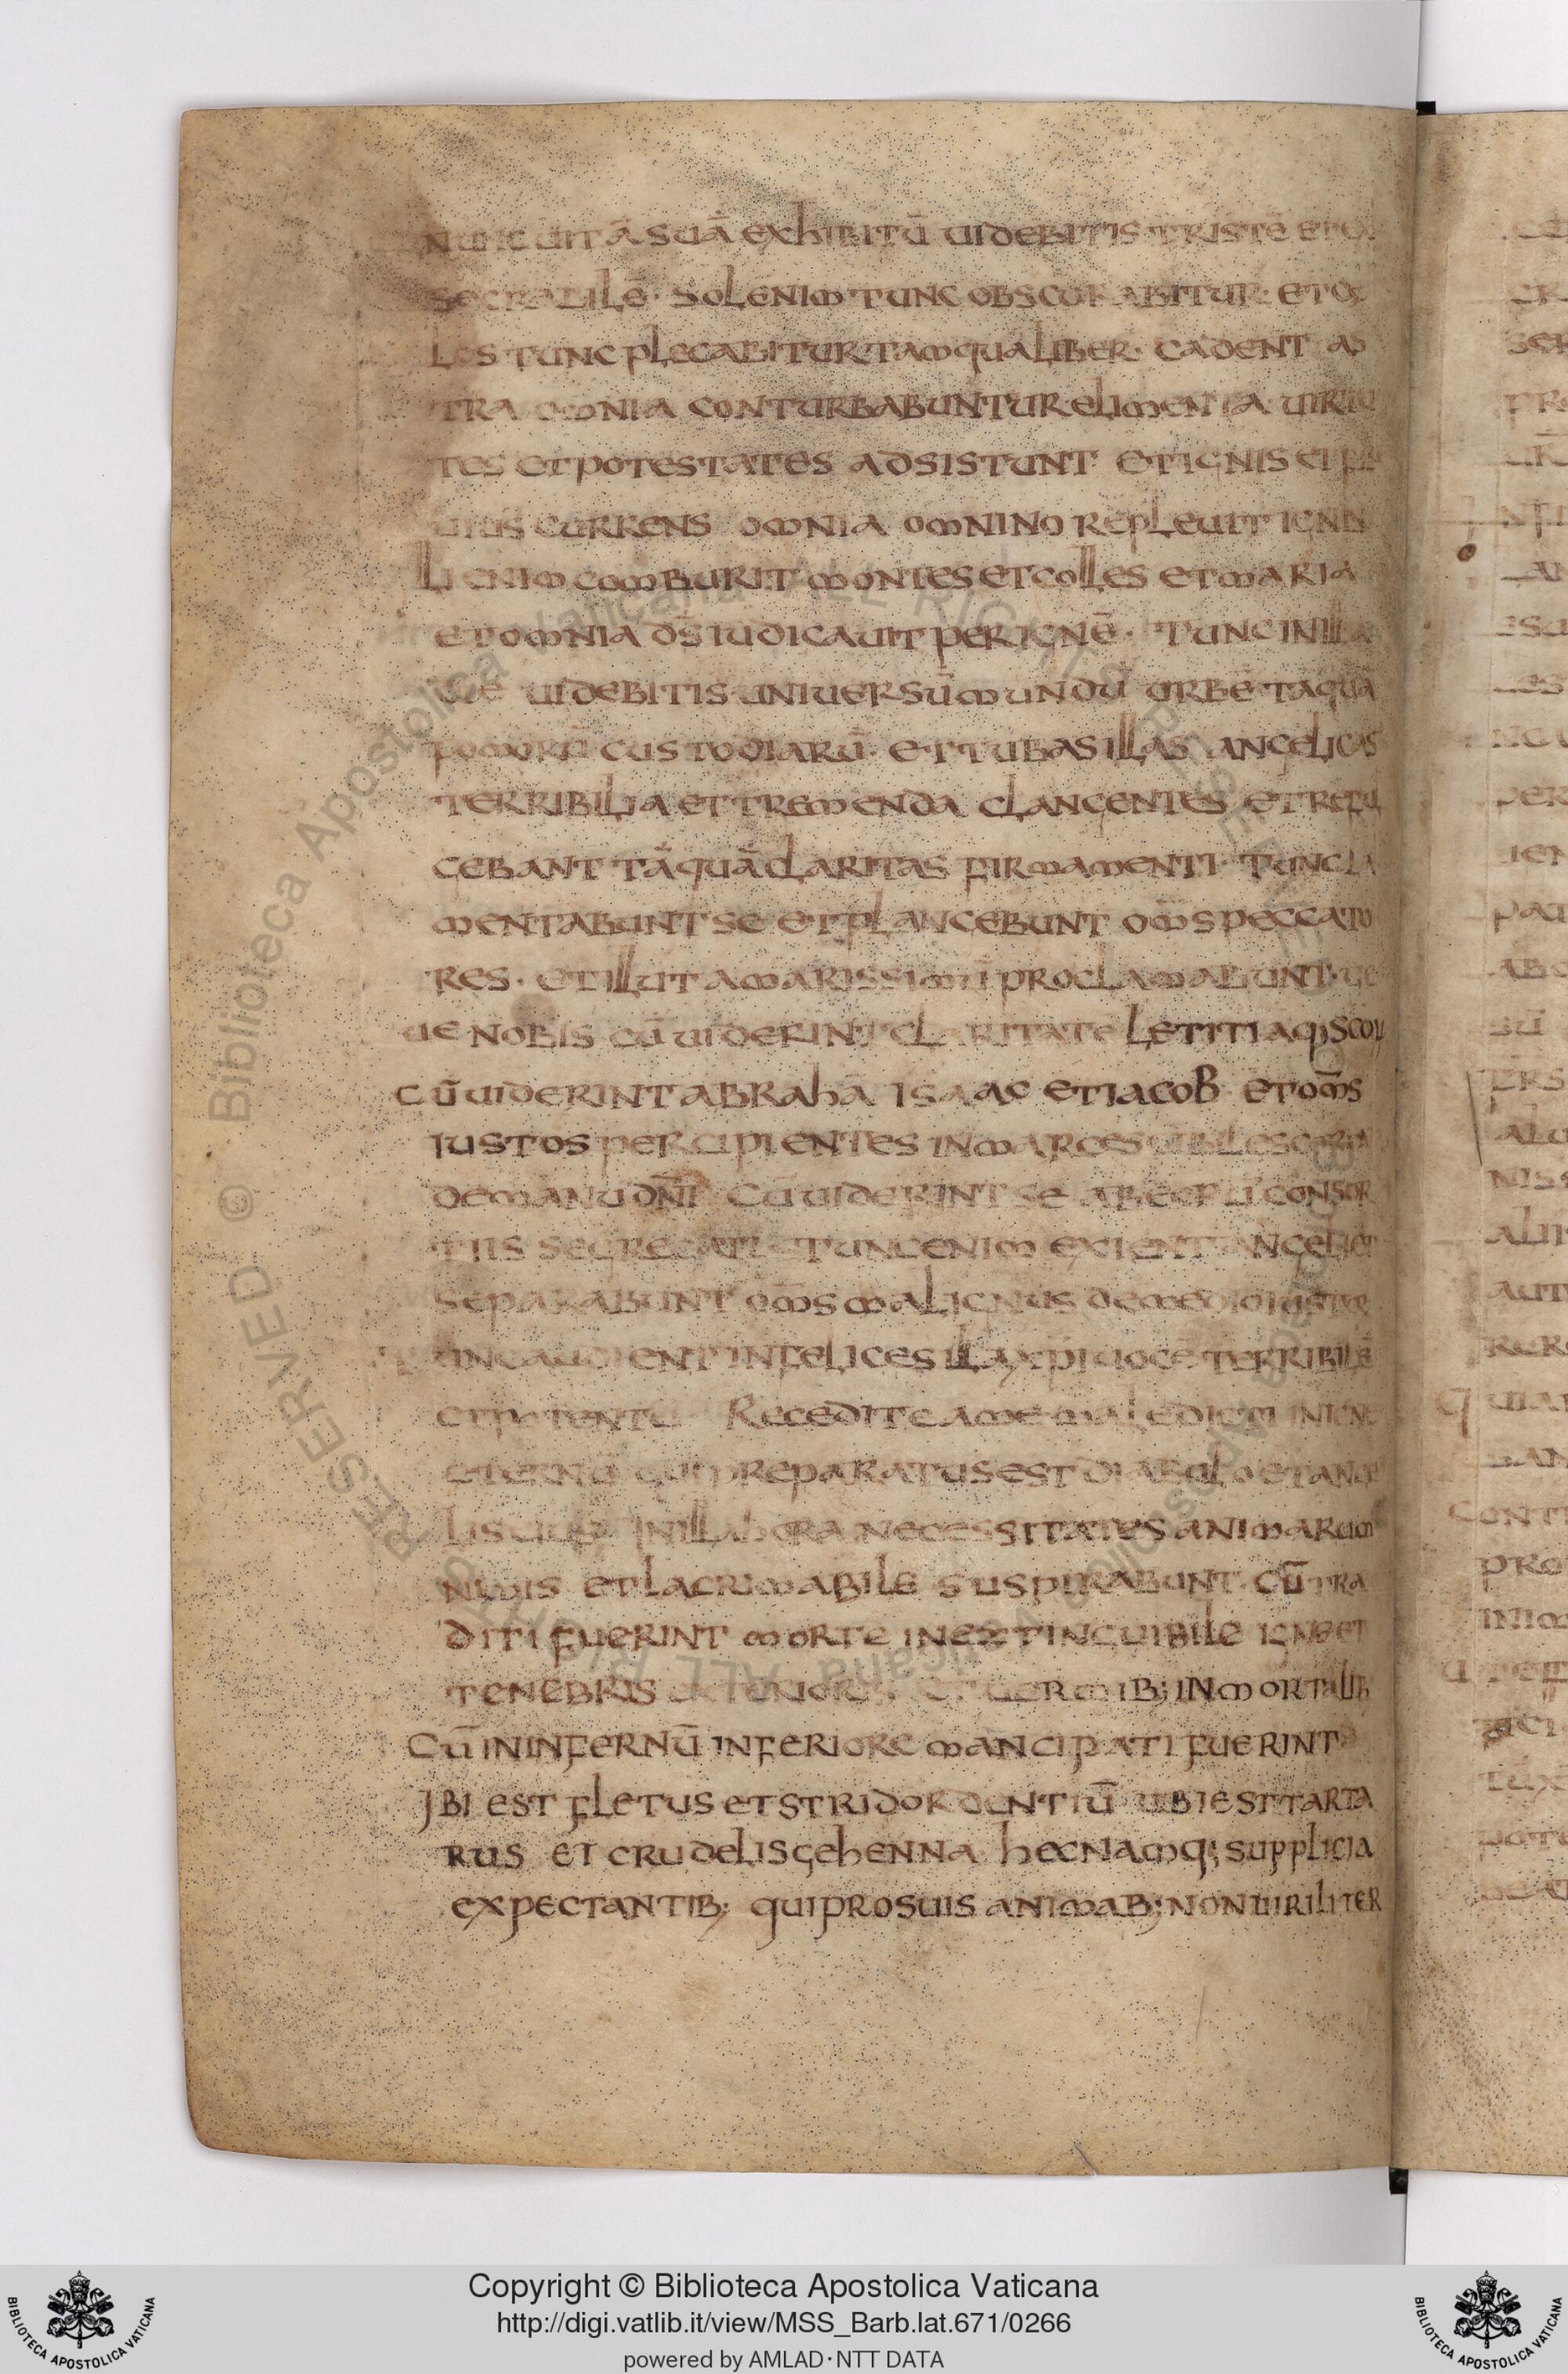 nunc uitā suā exhibitū uidebitis tristē et
secrabilē · sol enim tunc obscorabitur · et
tunc plecabitur tamqua liber · cadent as
tra omnia conturbabuntur elimenta
tes et potestates adsistunt et ignis
currens omnia omnino repleuit ignis
enim comburit montes et colles et maria
et omnia ds̄ iudicauit per ignē · tunc in illa
die uidebitis uniuersū mundū orbē tāquā
pomorū custodiarū · et tubas illas angelicas
terribilia et tremenda clangentes et
cebant tāquā claritas firmamenti · tunc la
mentabunt se et plangebunt om̄s peccato
res · et illut amarissimū proclamabunt · ue
ue nobis cū uiderint claritate letitiaq;
cū uiderint abrahā isaac et iacob et om̄s
iustos percipientes
de manu dn̄i cū uiderint se ab eorū consor
tiis segregati tunc enim exient angeli et
separabunt om̄s malignus de medio
tunc audient infelices illā xp̄i uocē terribilē
Recedite a me maledicti in igne
eternū preparatus est diabolo et ange
lis eius in illa hora necessitates animarum
nimis et lacrimabile suspirabunt · cū tra
diti fuerint morte inextinguibile igne et
tenebris et uermib; inmortalib;
Cū in infernū inferiore mancipati fuerint
Ibi est fletus et stridor dentiū ubi est tarta
rus et crudelis gehenna hec namq; supplicia
expectantib; qui pro suis animab; non uiriliter
Copyright © Biblioteca Apostolica Vaticana
http://digi.vatlib.it/view/MSS_Barb.lat.671/0266
powered by AMLAD·NTT DATA
BIBLIOTECA APOSTOLICA VATICANA
BIBLIOTECA APOSTOLICA VATICANA